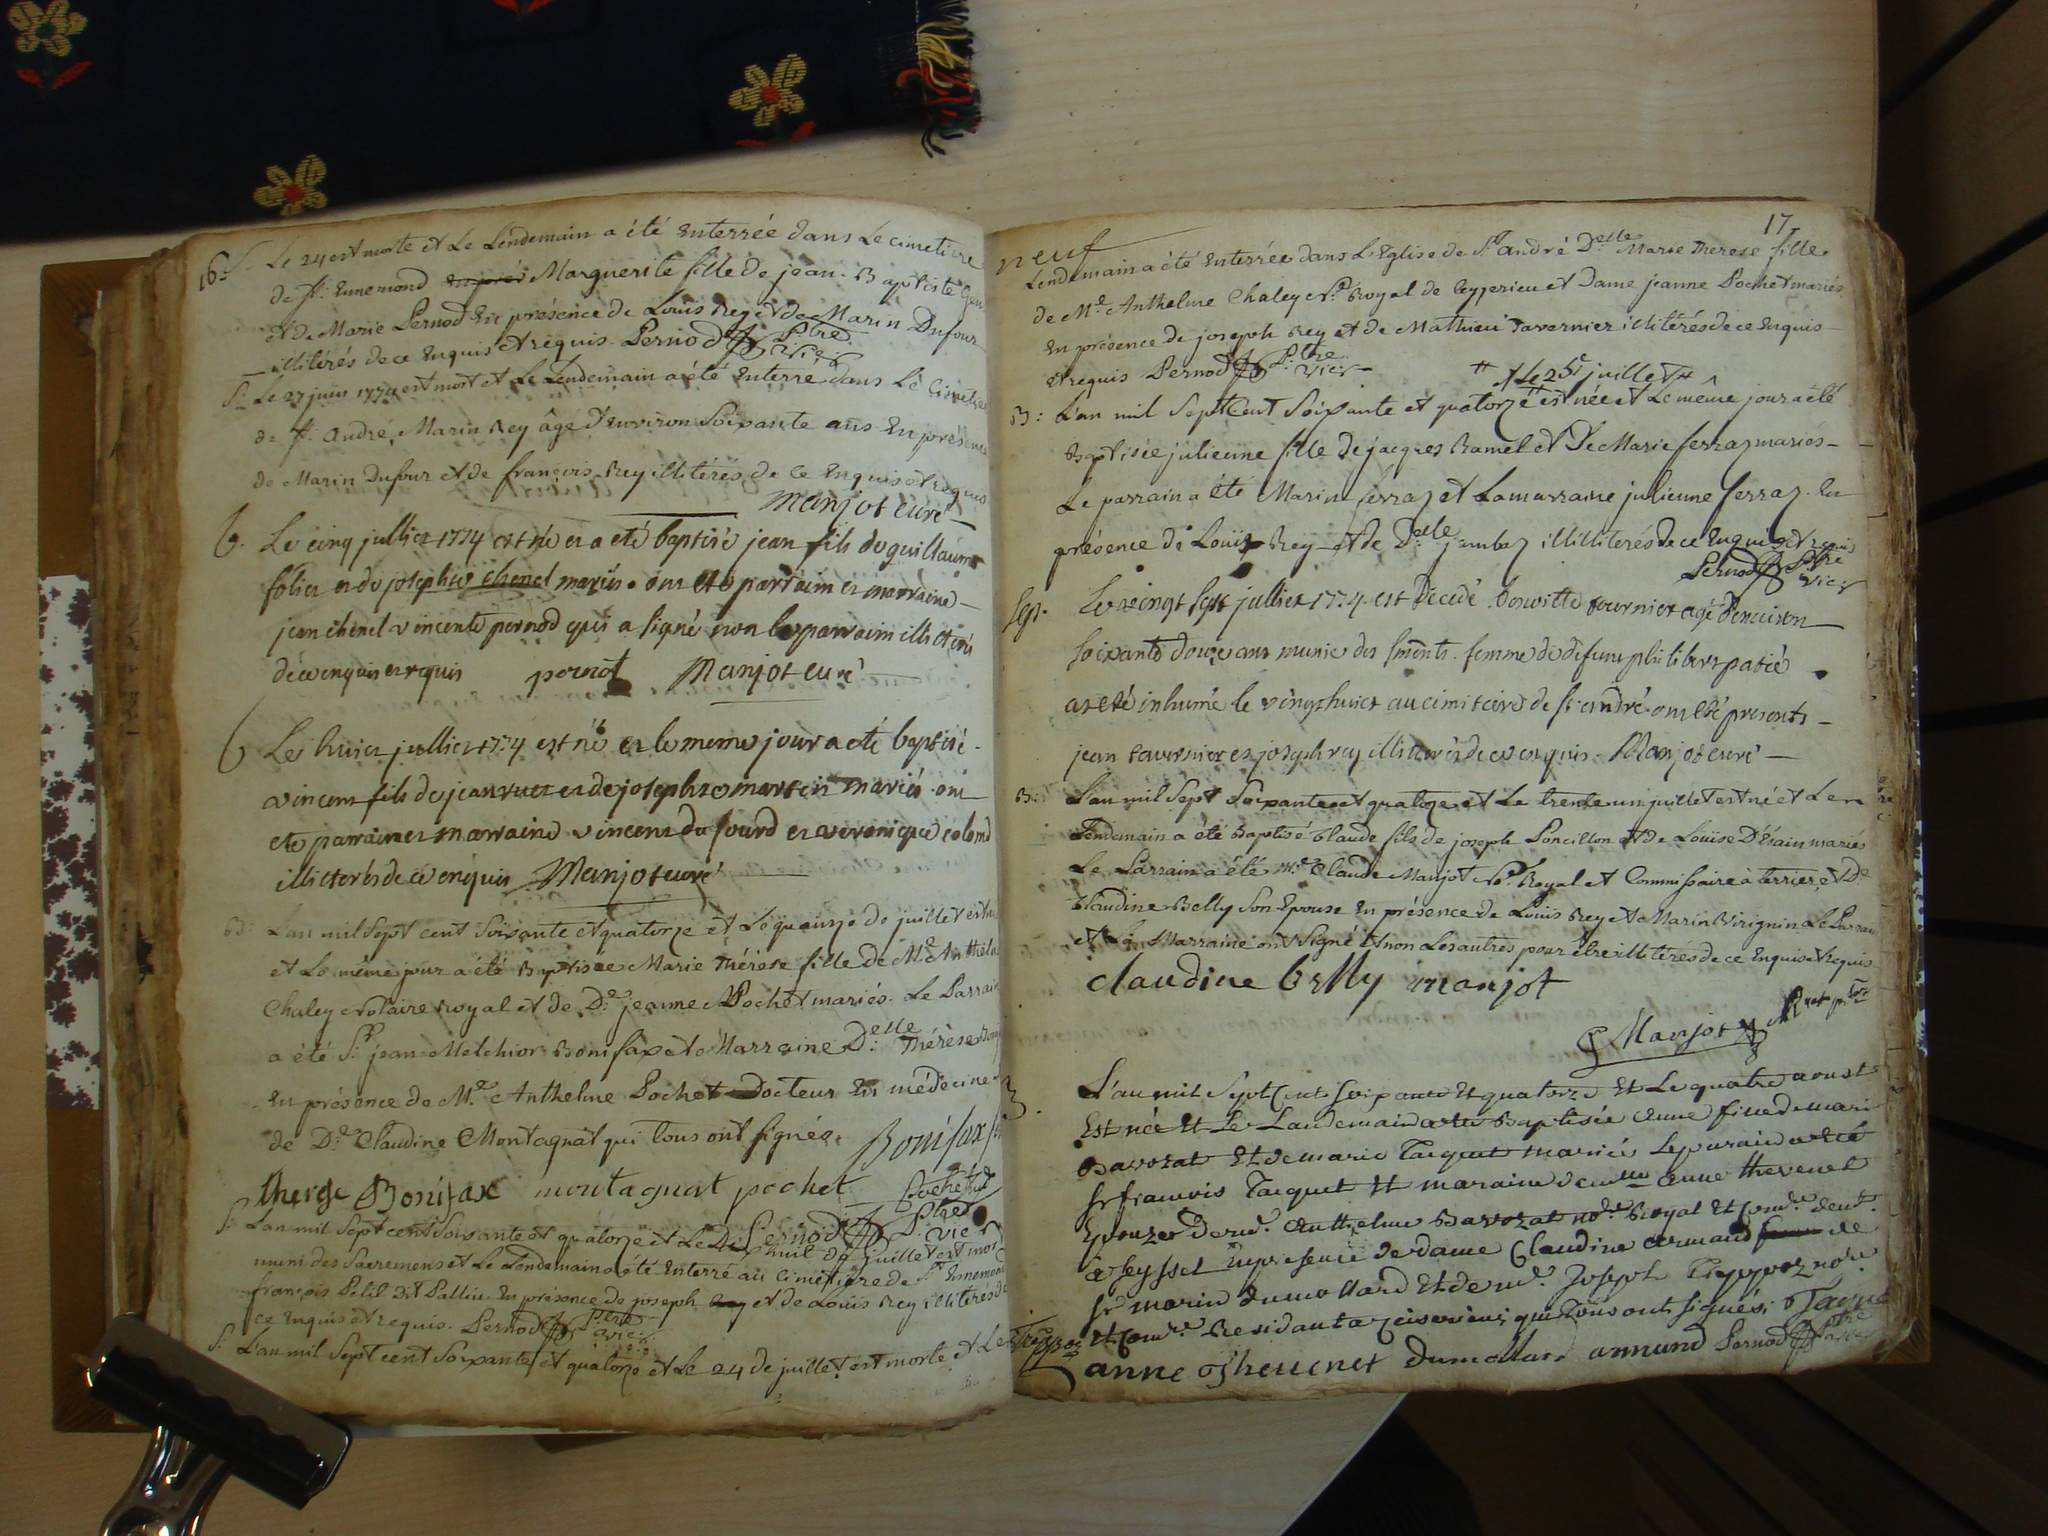 16.
S. Le 24 est morte et Le Lendemain a été enterrée dans Le cimetiere
de St. Ennemond Marguerite fille de jean Baptiste
et de Marie Pernod En présence de Louis Rey et de Marin Dufour
illitérés de ce Enquis et requis. Pernod Ptre Vic.
S. Le 27 juin 1774 est mort et Le Lendemain a été Enterré dans Le Cimetiere
de St. André, Marin Rey âgé d'Environ Soixante ans En présence
de Marin Dufour et de françois Rey illitérés de ce Enquis et requis
Manjot curé
b. Le cinq jullier 1774 est né et a eté baptisé jean fils de guillaume
folier et de josephte chenel mariés. ont eté parraim et marraine
jean chenel vincente pernod qui a signé non le parraim illiteré
de ce enquis et requis pernot Manjot curé
b Le huict jullier 1774 est né et le meme jour a eté baptisé
vincent fils de jean ruet et de josephte martin mariés. ont
eté parraim et marraine vincent du fourd et veronique colomd
illiterés de ce enquis Manjot curé
B. L'an mil Sept cent Soixante et quatorze et Le quinze de juillet est née
et Le même jour a été Baptisée Marie Thérèse fille de Me. Anthelme
Chaley Notaire Royal et de De. jeanne Pochet mariés. Le Parrain
a été Sr. jean Melchior Bonifax et Marraine Delle. Thérèse
En présence de Me. Anthelme Pochet Docteur En médecine
de De. Claudine Montagnat qui tous ont signés. Bonifax
therese Bonifax montagnat pochet
Pernod Ptre Vic.
S. L'an mil Sept cent Soixante et quatorze et Le huit de juillet est mort
muni des Sacremens et Le Lendemain a été Enterré au Cimetiere de St. Ennemond
françois Petit Dit Pattiu En présence de joseph et de Louis Rey illitérés de
ce Enquis et requis. Pernod Ptre Vic.
S. L'an mil Sept cent Soixante et quatorze et Le 24 de juillet est morte et Le
17.
neuf
Lendemain a été Enterrée dans L'Eglise de St. André Delle. Marie Therese fille
de Me. Anthelme Chaley Nre. Royal de Ceyzerieu et Dame jeanne Pochet mariés
En présence de joseph Rey et de Mathieu Tavernier illitérés de ce Enquis
et requis Pernod Ptre Vic.
Le 25e juillet
B: L'an mil Sept Cent Soixante et quatorze est née et Le même jour a été
Baptisée julienne fille de jacques Ramel et De Marie ferraz mariés
Le parrain a été Marin ferraz et La marraine julienne ferraz. En
présence de Louis Rey et de Delle. jambaz illitterés de ce Enquis et requis
Pernod Ptre Vic.
Sep. Le vingt sept jullier 1774. est decedé tournier agé denviron
soixante douze ans munie des sments. femme de defunt philibert patié
at eté inhumé le vingt huict au cimitiere de st. andré. ont eté presents
jean tavernier et joseph rey illiterés de ce enquis. Manjot curé
B: L'an mil Sept Soixante et quatorze et Le trente un juillet est né et Le
Lendemain a été Baptisé Claude fils de joseph Poncillon et de Louise D'Erain mariés
Le Parrain a été Me. Claude Manjot Nre. Royal et Commissaire à terrier et De.
Claudine Belly Son Epouse En présence de Louis Rey et Marin Virignin Le Parrain
et La Marraine ont Signé et non Les autres pour être illitérés de ce Enquis et Requis
claudine belly manjot
Manjot
L'an mil Sept Cent Soixante et quatorze et Le quatre aoust
Est née et Le Landemain a etée Baptisée anne fille de mari
Bavozat et de marie Taiquet mariés Le parain a eté
Sr francois Taiquet et maraine demlle anne thevenet
Epouze de me. Anthelme Bavozat nore. Royal et Comre. deut.
a seyssel En presence de dame Claudine armand de
Sr marin dumollard et de me. Joseph Trippoz nore.
et Comre. Residant a Ceiserieu; qui tous ont signés; Taiquet
Trippoz anne Thevenet Dumollard armand Pernod Ptre Vic.